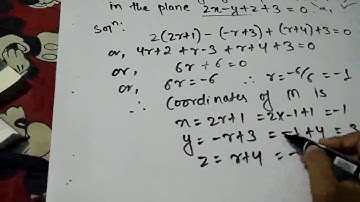 in the plane 2x-y+z+3=0
Soln:
2(2r+1) - (-r+3) + (r+4) + 3 = 0
or, 4r+2 + r-3 + r+4 + 3 = 0
or, 6r + 6 = 0
or, 6r = -6 ∴ r = -6/6 = -1
∴ Coordinates of M is
x = 2r+1 = 2x-1+1 = -1
y = -r+3 = +4 = 3
z = r+4 =